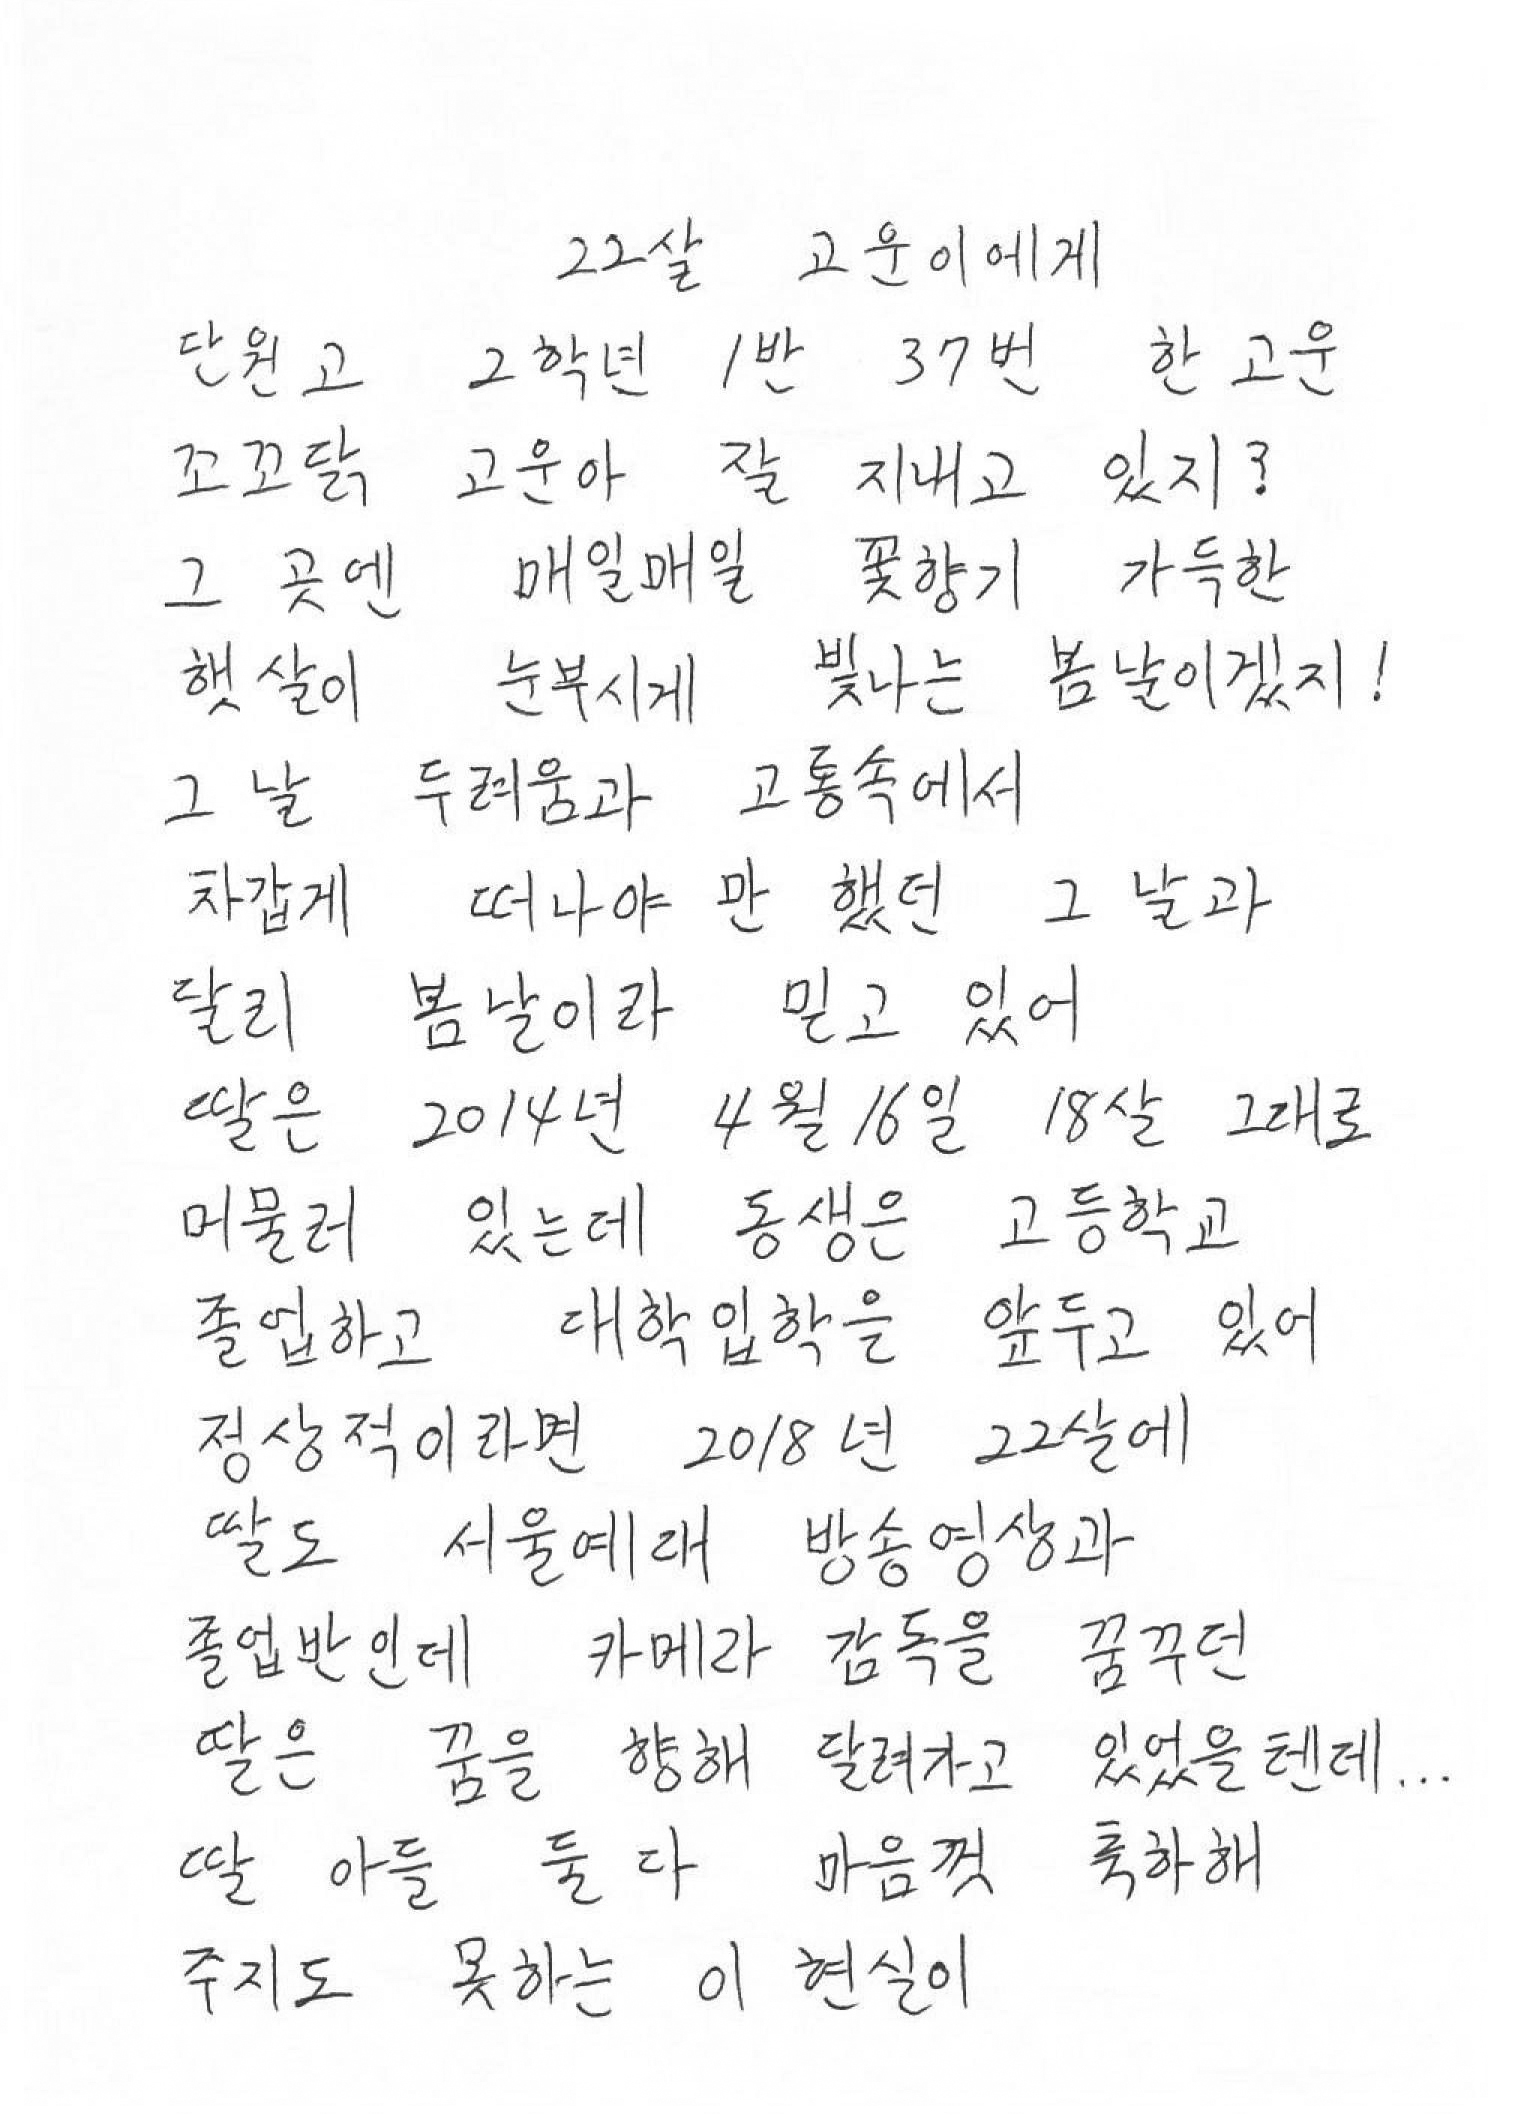 22살 고운이에게
단원고 2학년 1반 37번 한고운
꼬꼬닭 고운아 잘 지내고 있지?
그 곳엔 매일매일 꽃향기 가득한
햇살이 눈부시게 빛나는 봄날이겠지!
그 날 두려움과 고통속에서
차갑게 떠나야 만 했던 그 날과
달리 봄날이라 믿고 있어
딸은 2014년 4월 16일 18살 그대로
머물러 있는데 동생은 고등학교
졸업하고 대학입학을 앞두고 있어
정상적이라면 2018년 22살에
딸도 서울예대 방송영상과
졸업반인데 카메라 감독을 꿈꾸던
딸은 꿈을 향해 달려가고 있었을텐데...
딸 아들 둘 다 마음껏 축하해
주지도 못하는 이 현실이